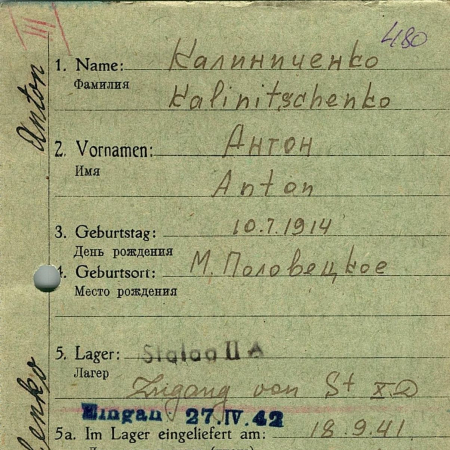 III
480
1. Name: Калиниченко
Фамилия
Kalinitschenko
2. Vornamen: Антон
Имя
Anton
3. Geburtstag: 10.7.1914
День рождения
4. Geburtsort: М. Половецкое
Место рождения
5. Lager: Stalag II A
Лагер
Zugang von St XD
Eingan 27. IV. 42
5a. Im Lager eingeliefert am: 18.9.41.
Anton
enko